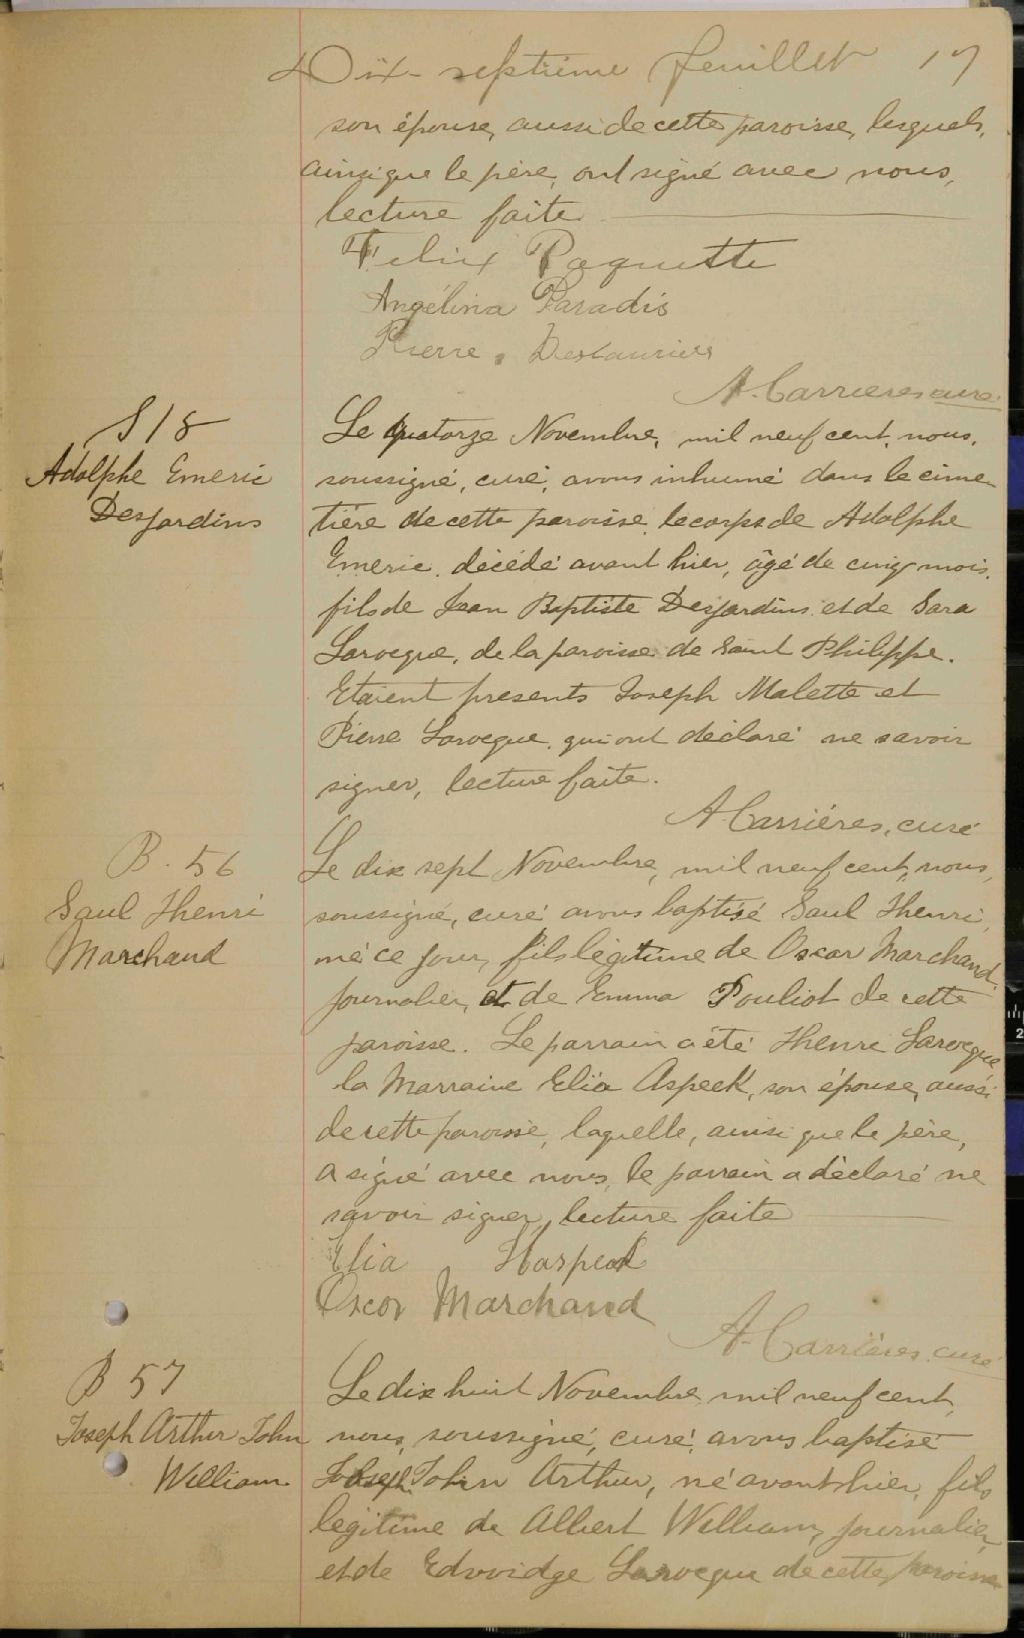 Dix-septième feuillet 17
son épouse, aussi de cette paroisse, lesquels,
ainsi que le père, ont signé avec nous,
lecture faite
Felix Paquette
Angélina Paradis
Pierre Deslauriers
A. Carrières curé
S 18
Adolphe Emeric
Desjardins
Le quatorze Novembre, mil neuf cent, nous,
soussigné, curé, avons inhumé dans le cime-
tière de cette paroisse le corps de Adolphe
Emeric, décédé avant hier, âgé de cinq mois,
fils de Jean Baptiste Desjardins et de Sara
Larocque, de la paroisse de Saint Philippe.
Etaient presents Joseph Malette et
Pierre Larocque, qui ont déclaré ne savoir
signer, lecture faite.
A. Carrières, curé
B. 56
Saul Henri
Marchand
Le dix sept Novembre, mil neuf cent, nous,
soussigné, curé avons baptisé Saul Henri,
né ce jour, fils légitime de Oscar Marchand,
journalier, et de Emma Pouliot de cette
paroisse. Le parrain a été Henri Larocque
la Marraine Elia Aspeck, son épouse, aussi
de cette paroisse, laquelle, ainsi que le père,
a signé avec nous, le parrain a déclaré ne
savoir signer, lecture faite
Elia Haspeck
Oscar Marchand
A. Carrières, curé
B 57
Joseph Arthur John
William
Le dix huit Novembre mil neuf cent,
nous, soussigné, curé, avons baptisé
Joseph John Arthur, né avant hier, fils
légitime de Albert William, journalier,
et de Edwidge Larocque de cette paroisse